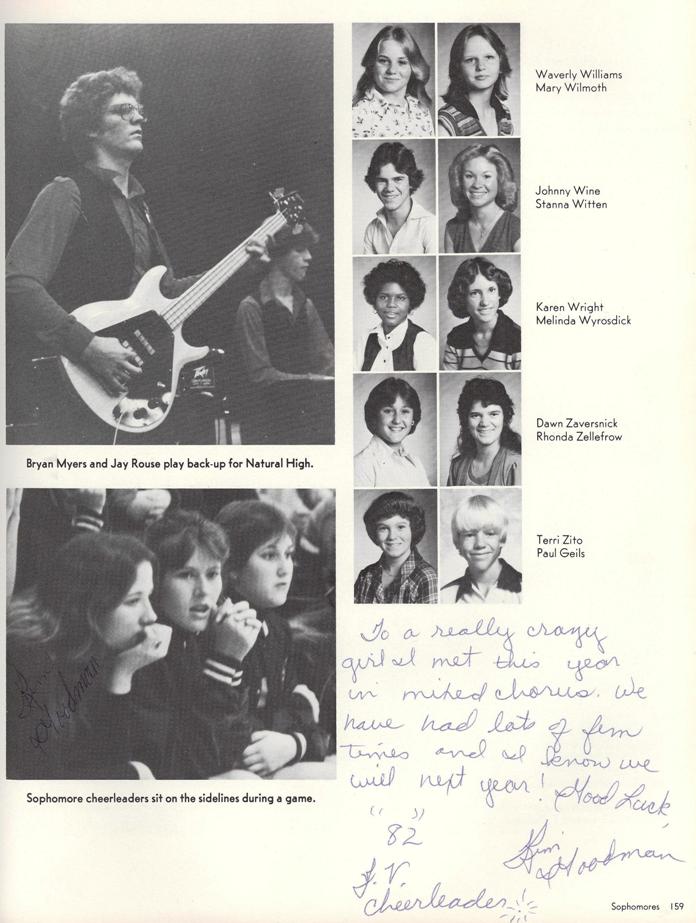 Waverly Williams
Mary Wilmoth
Johnny Wine
Stanna Witten
Karen Wright
Melinda Wyrosdick
Dawn Zaversnick
Rhonda Zellefrow
Terri Zito
Paul Geils
PEAVEY
Bryan Myers and Jay Rouse play back-up for Natural High.
Kim
Goodman
Sophomore cheerleaders sit on the sidelines during a game.
To a really crazy
girl I met this year
in mixed chorus. We
have had lots of fun
times and I know we
will next year! Good Luck,
Kim
Goodman
" "
82
J.V
cheerleader!
Sophomores 159